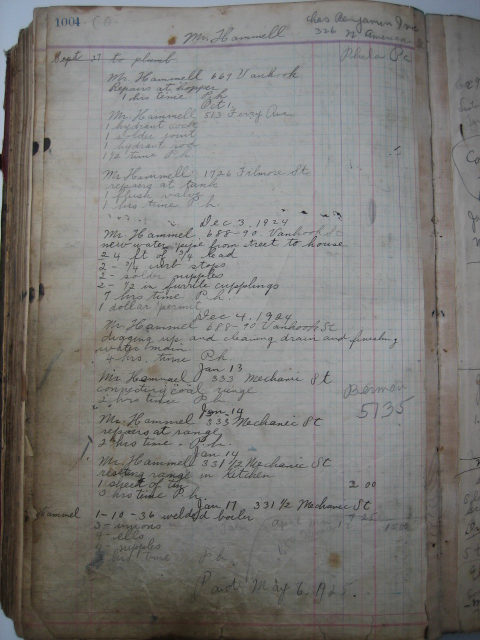 1004
Mr. Hammell
Chas Benjamin Inc
326 N American St
Phila Pa
Sept 25 to plumb
Mr. Hammell 669 Vanhook
Repairs at hopper
1 hrs time P.h
Oct 1
Mr Hammell 513 Ferry Ave
1 hydrant cock
1 solder joint
1 hydrant rod
1 1/2 time P.h
Mr Hammell 1726 Filmore St
repairing at tank
1 flush valve
1 hrs time P.h.
Dec 3, 1924
Mr. Hammel 688-90 Vanhook St
new water pipe from street to house
24 ft of 3/4 lead
2 - 3/4 curb stops
2 - solder nipples
2 - 1/2 in cupplings
7 hrs time P.h.
1 dollar permit
Dec 4, 1924
Mr Hammel 688-90 Vanhook St
digging up and cleaning drain and finishing
water main
4 hrs. time P.h
Jan 13
Mr Hammell 333 Mechanic St
connecting coal range
2 hrs time P.h
Berman
5135
Jan 14
Mr. Hammell 333 Mechanic St
repairs at range
2 hrs time - P.h.
Jan 14
Mr. Hammell 331 1/2 Mechanic St
resting range in Kitchen
1 sheet of tin 2 00
3 hrs time P.h.
Jan 17 331 1/2 Mechanic St
Hammel 1 - 10 - 36 welded boiler
3 - unions
4 - ells
4 - nipples
hrs time P.h.
Paid May 6, 1925.